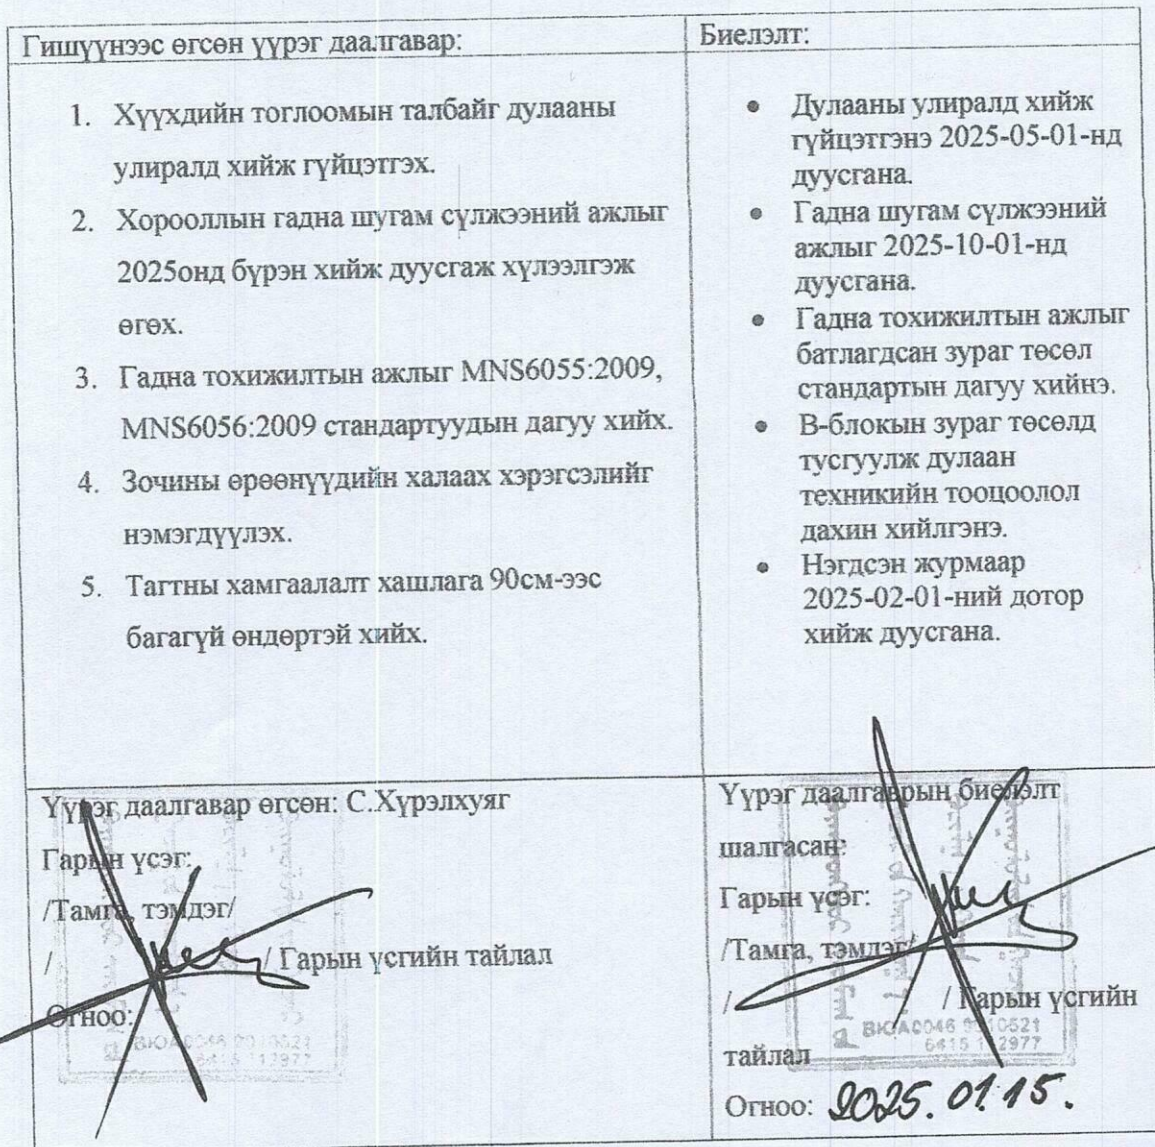 Гишүүнээс өгсөн үүрэг даалгавар:
1. Хүүхдийн тоглоомын талбайг дулааны
улиралд хийж гүйцэтгэх.
2. Хорооллын гадна шугам сүлжээний ажлыг
2025онд бүрэн хийж дуусгаж хүлээлгэж
өгөх.
3. Гадна тохижилтын ажлыг MNS6055:2009,
MNS6056:2009 стандартуудын дагуу хийх.
4. Зочины өрөөнүүдийн халаах хэрэгсэлийг
нэмэгдүүлэх.
5. Тагтны хамгаалалт хашлага 90см-ээс
багагүй өндөртэй хийх.
Биелэлт:
• Дулааны улиралд хийж
гүйцэтгэнэ 2025-05-01-нд
дуусгана.
• Гадна шугам сүлжээний
ажлыг 2025-10-01-нд
дуусгана.
• Гадна тохижилтын ажлыг
батлагдсан зураг төсөл
стандартын дагуу хийнэ.
• В-блокын зураг төсөлд
тусгуулж дулаан
техникийн тооцоолол
дахин хийлгэнэ.
• Нэгдсэн журмаар
2025-02-01-ний дотор
хийж дуусгана.
Үүрэг даалгавар өгсөн: С.Хүрэлхуяг
Гарын үсэг:
/Тамга, тэмдэг/
/ / Гарын үсгийн тайлал
Огноо:
Үүрэг даалгаврын биелэлт
шалгасан:
Гарын үсэг:
/Тамга, тэмдэг/
/ / Гарын үсгийн
тайлал
Огноо: 2025.01.15.